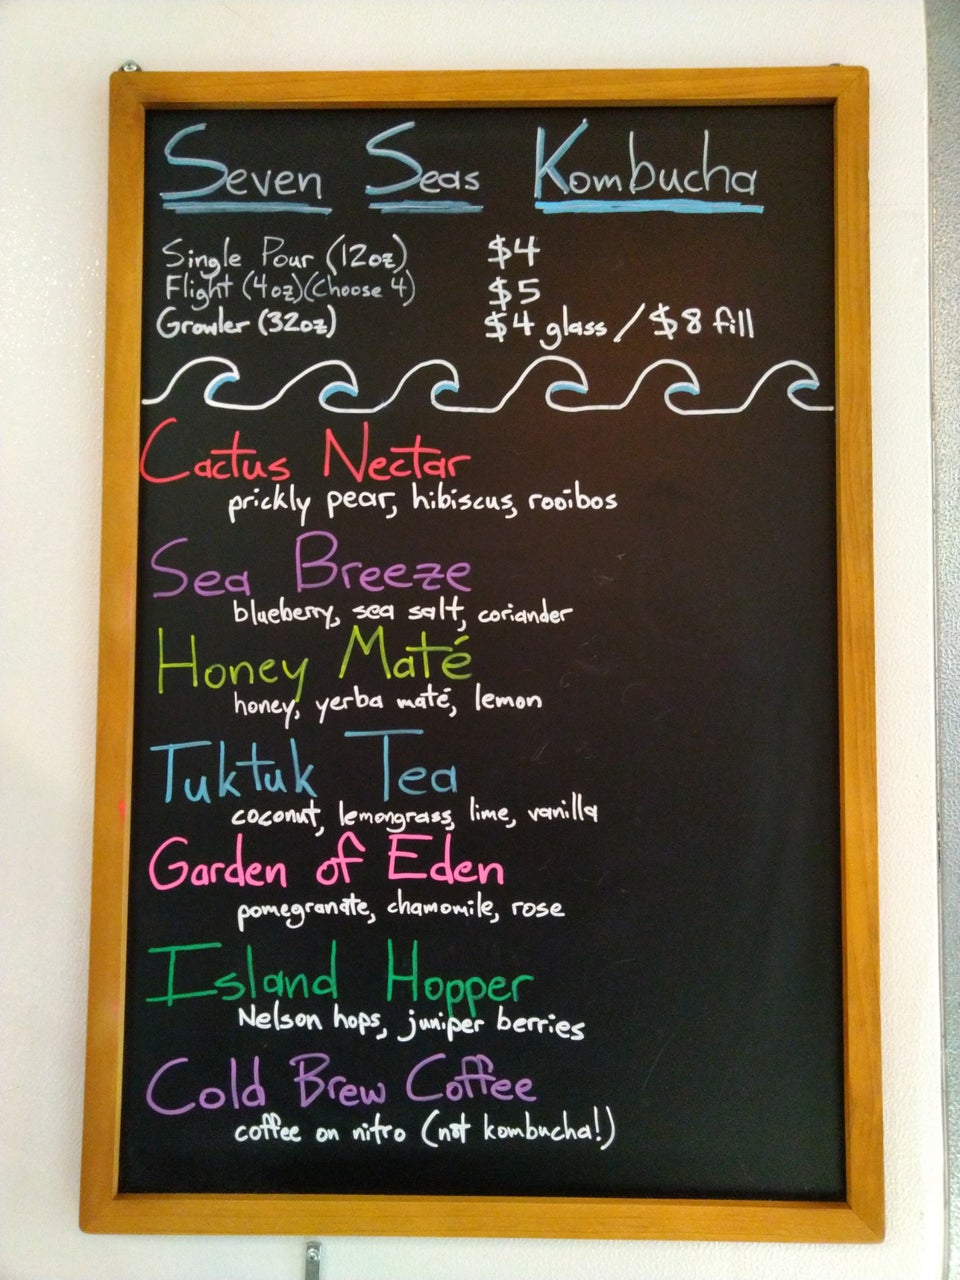 Seven Seas Kombucha
Single Pour (12oz) $4
Flight (4oz)(Choose 4) $5
Growler (32oz) $4 glass / $8 fill
Cactus Nectar
prickly pear, hibiscus, rooibos
Sea Breeze
blueberry, sea salt, coriander
Honey Maté
honey, yerba maté, lemon
Tuktuk Tea
coconut, lemongrass, lime, vanilla
Garden of Eden
pomegranate, chamomile, rose
Island Hopper
Nelson hops, juniper berries
Cold Brew Coffee
coffee on nitro (not kombucha!)